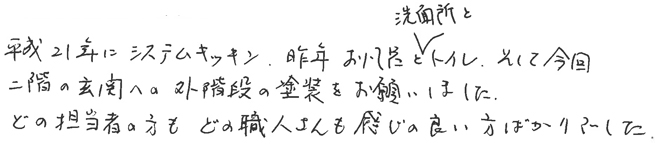 洗面所と
平成21年にシステムキッチン、昨年お風呂とトイレ、そして今回
二階の玄関への外階段の塗装をお願いしました。
どの担当者の方もどの職人さんも感じの良い方ばかりでした。